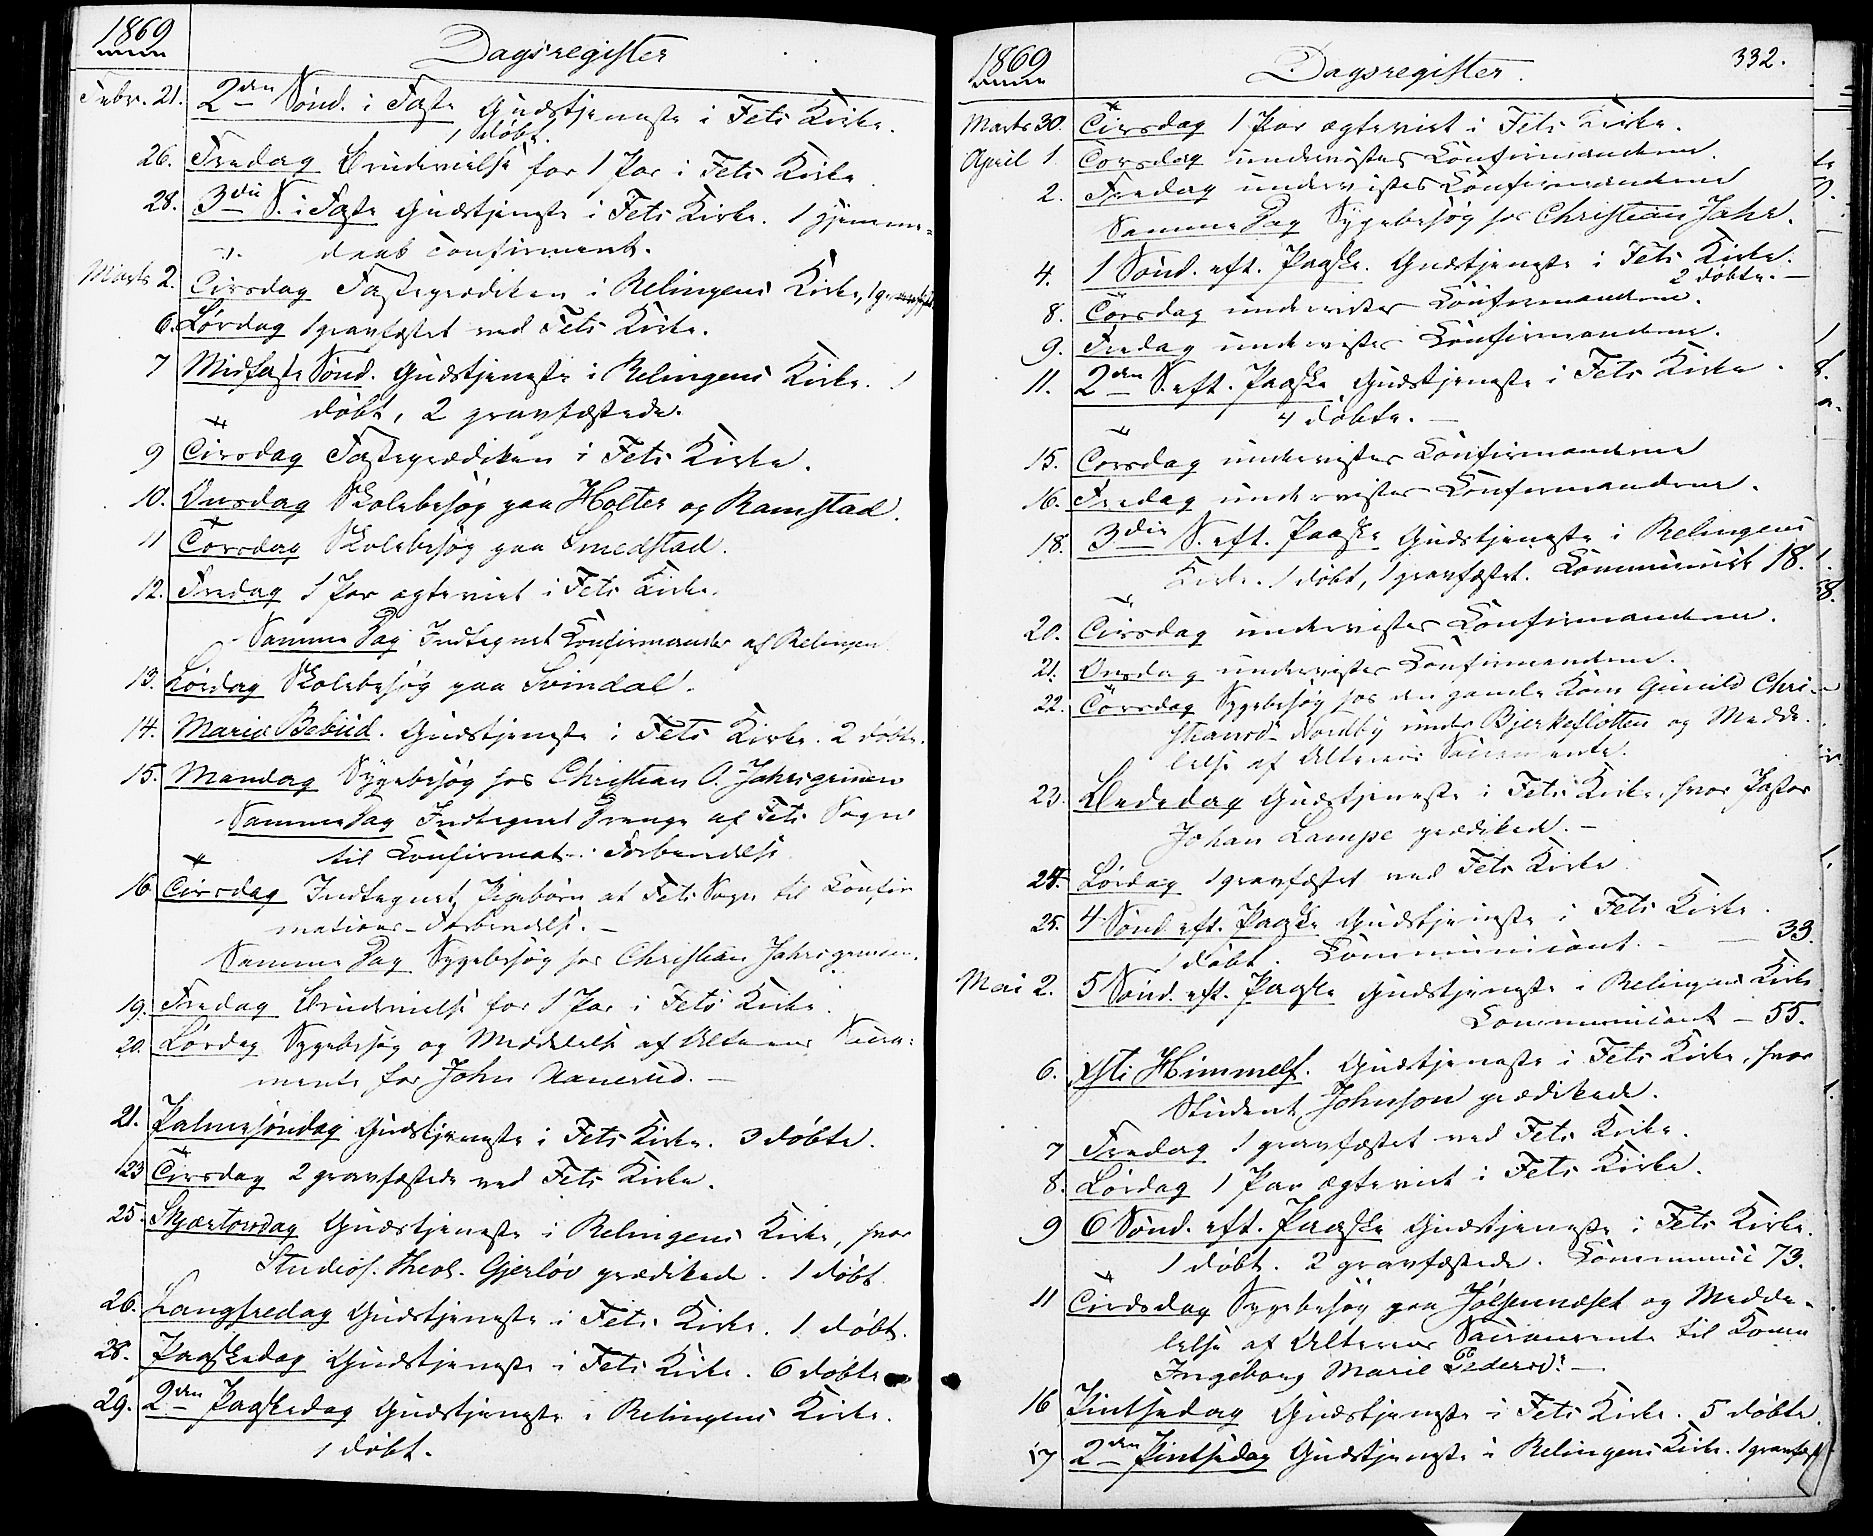 1869
Dagsregister
Febr. 21. 2den Sönd. i Faste Gudstjeneste i Fets Kirke.
1 döbt.
26. Fredag Brudevielse for 1 Par i Fets Kirke
28. 3die S. i Faste Gudstjeneste i Fets Kirke. 1 hjemme-
daab confirmeret.
Marts 2. Tirsdag Fasteprædiken i Relingens Kirke, 1 gravfæstet
6. Lørdag 1 gravfæstet ved Fets Kirke.
7 Midfaste Sönd. Gudstjeneste i Relingens Kirke. 1
döbt, 2 gravfæstede.
9 Tirsdag Fasteprædiken i Fets Kirke.
10. Onsdag Skolebesøg paa Holter og Ramstad.
11 Torsdag Skolebesøg paa Smedstad.
12. Fredag 1 Par ægteviet i Fets Kirke.
Samme Dag Indtegnet Confirmander af Relingen
13. Lørdag Skolebesøg paa Svindal.
14. Mariæ Bebud. Gudstjeneste i Fets Kirke. 2 döbte.
15. Mandag Sygebesøg hos Christian O. Jahrsgrinden
Samme Dag Indtegnet Drenge af Fets Sogn
til Confirmat. Forberedelse
16 Tirsdag Indtegnet Pigebörn af Fets Sogn til Confir
mations-Forberedelse. -
Samme Dag Sygebesøg hos Christian Jahrsgrinden.
19. Fredag Brudevielse for 1 Par i Fets Kirke.
20. Lørdag Sygebesøg og Meddelelse af Alterens Sacra-
mente for John Nanerud. -
21. Palmesöndag Gudstjeneste i Fets Kirke. 3 döbte.
23 Tirsdag 2 gravfæstede ved Fets Kirke.
25. Skjærtorsdag Gudstjeneste i Relingens Kirke, hvor
Studios. theol. Gjerløv prædikede. 1 döbt.
26. Langfredag Gudstjeneste i Fets Kirke. 1 döbt.
28. Paaskedag Gudstjeneste i Fets Kirke. 6 döbte
29. 2den Paaskedag Gudstjeneste i Relingens Kirke.
1 döbt.
1869
Dagsregister.
332.
Marts 30. Tirsdag 1 Par ægteviet i Fets Kirke.
April 1. Torsdag undervistes Confirmanderne.
2. Fredag undervistes Confirmanderne
Samme Dag Sygebesøg hos Christian Jahr.
4. 1 Sönd. eft. Paaske. Gudstjeneste i Fets Kirke.
2 döbte. -
8. Torsdag undervistes Confirmanderne.
9. Fredag undervistes Confirmanderne.
11. 2den S. eft. Paaske Gudstjeneste i Fets Kirke.
4 döbte. -
15. Torsdag undervistes Confirmanderne
16. Fredag undervistes Confirmanderne.
18. 3die S. eft. Paaske Gudstjeneste i Relingens
Kirke. 1 döbt, 1 gravfæstet. Communicert 18.
20. Tirsdag undervistes Confirmanderne.
21. Onsdag undervistes Confirmanderne.
22. Torsdag Sygebesøg hos den gamle Kone Gunild Chri-
stiansd. Nordby under Bjerkeslotten og Medde-
lelse af Alterens Sacramente.
23. Bededag Gudstjeneste i Fets Kirke, hvor Pastor
Johan Lampe prædikede. -
24. Lørdag 1 gravfæstet ved Fets Kirke
25. 4 Sönd. eft. Paaske Gudstjeneste i Fets Kirke.
1 döbt. Communicant. - - 33.
Mai 2. 5 Sönd. eft. Paaske Gudstjeneste i Relingens Kirke
Communicant - 55.
6. Xsti Himmelf. Gudstjeneste i Fets Kirke, hvor
Student Johnson prædikede.
7 Fredag 1 gravfæstet ved Fets Kirke.
8. Lørdag 1 Par ægteviet i Fets Kirke.
9 6 Sönd. eft. Paaske Gudstjeneste i Fets Kirke.
1 döbt. 2 gravfæstede. Communic 73.
11 Tirdsdag Sygebesøg paa og Medde-
lelse af Alterens Sacramente til Konen
Ingeborg Marie Pedersd: -
16 Pintsedag Gudstjeneste i Fets Kirke. 5 döbte.
17 2den Pintsedag Gudstjeneste i Relingens Kirke. 1 gravfæst